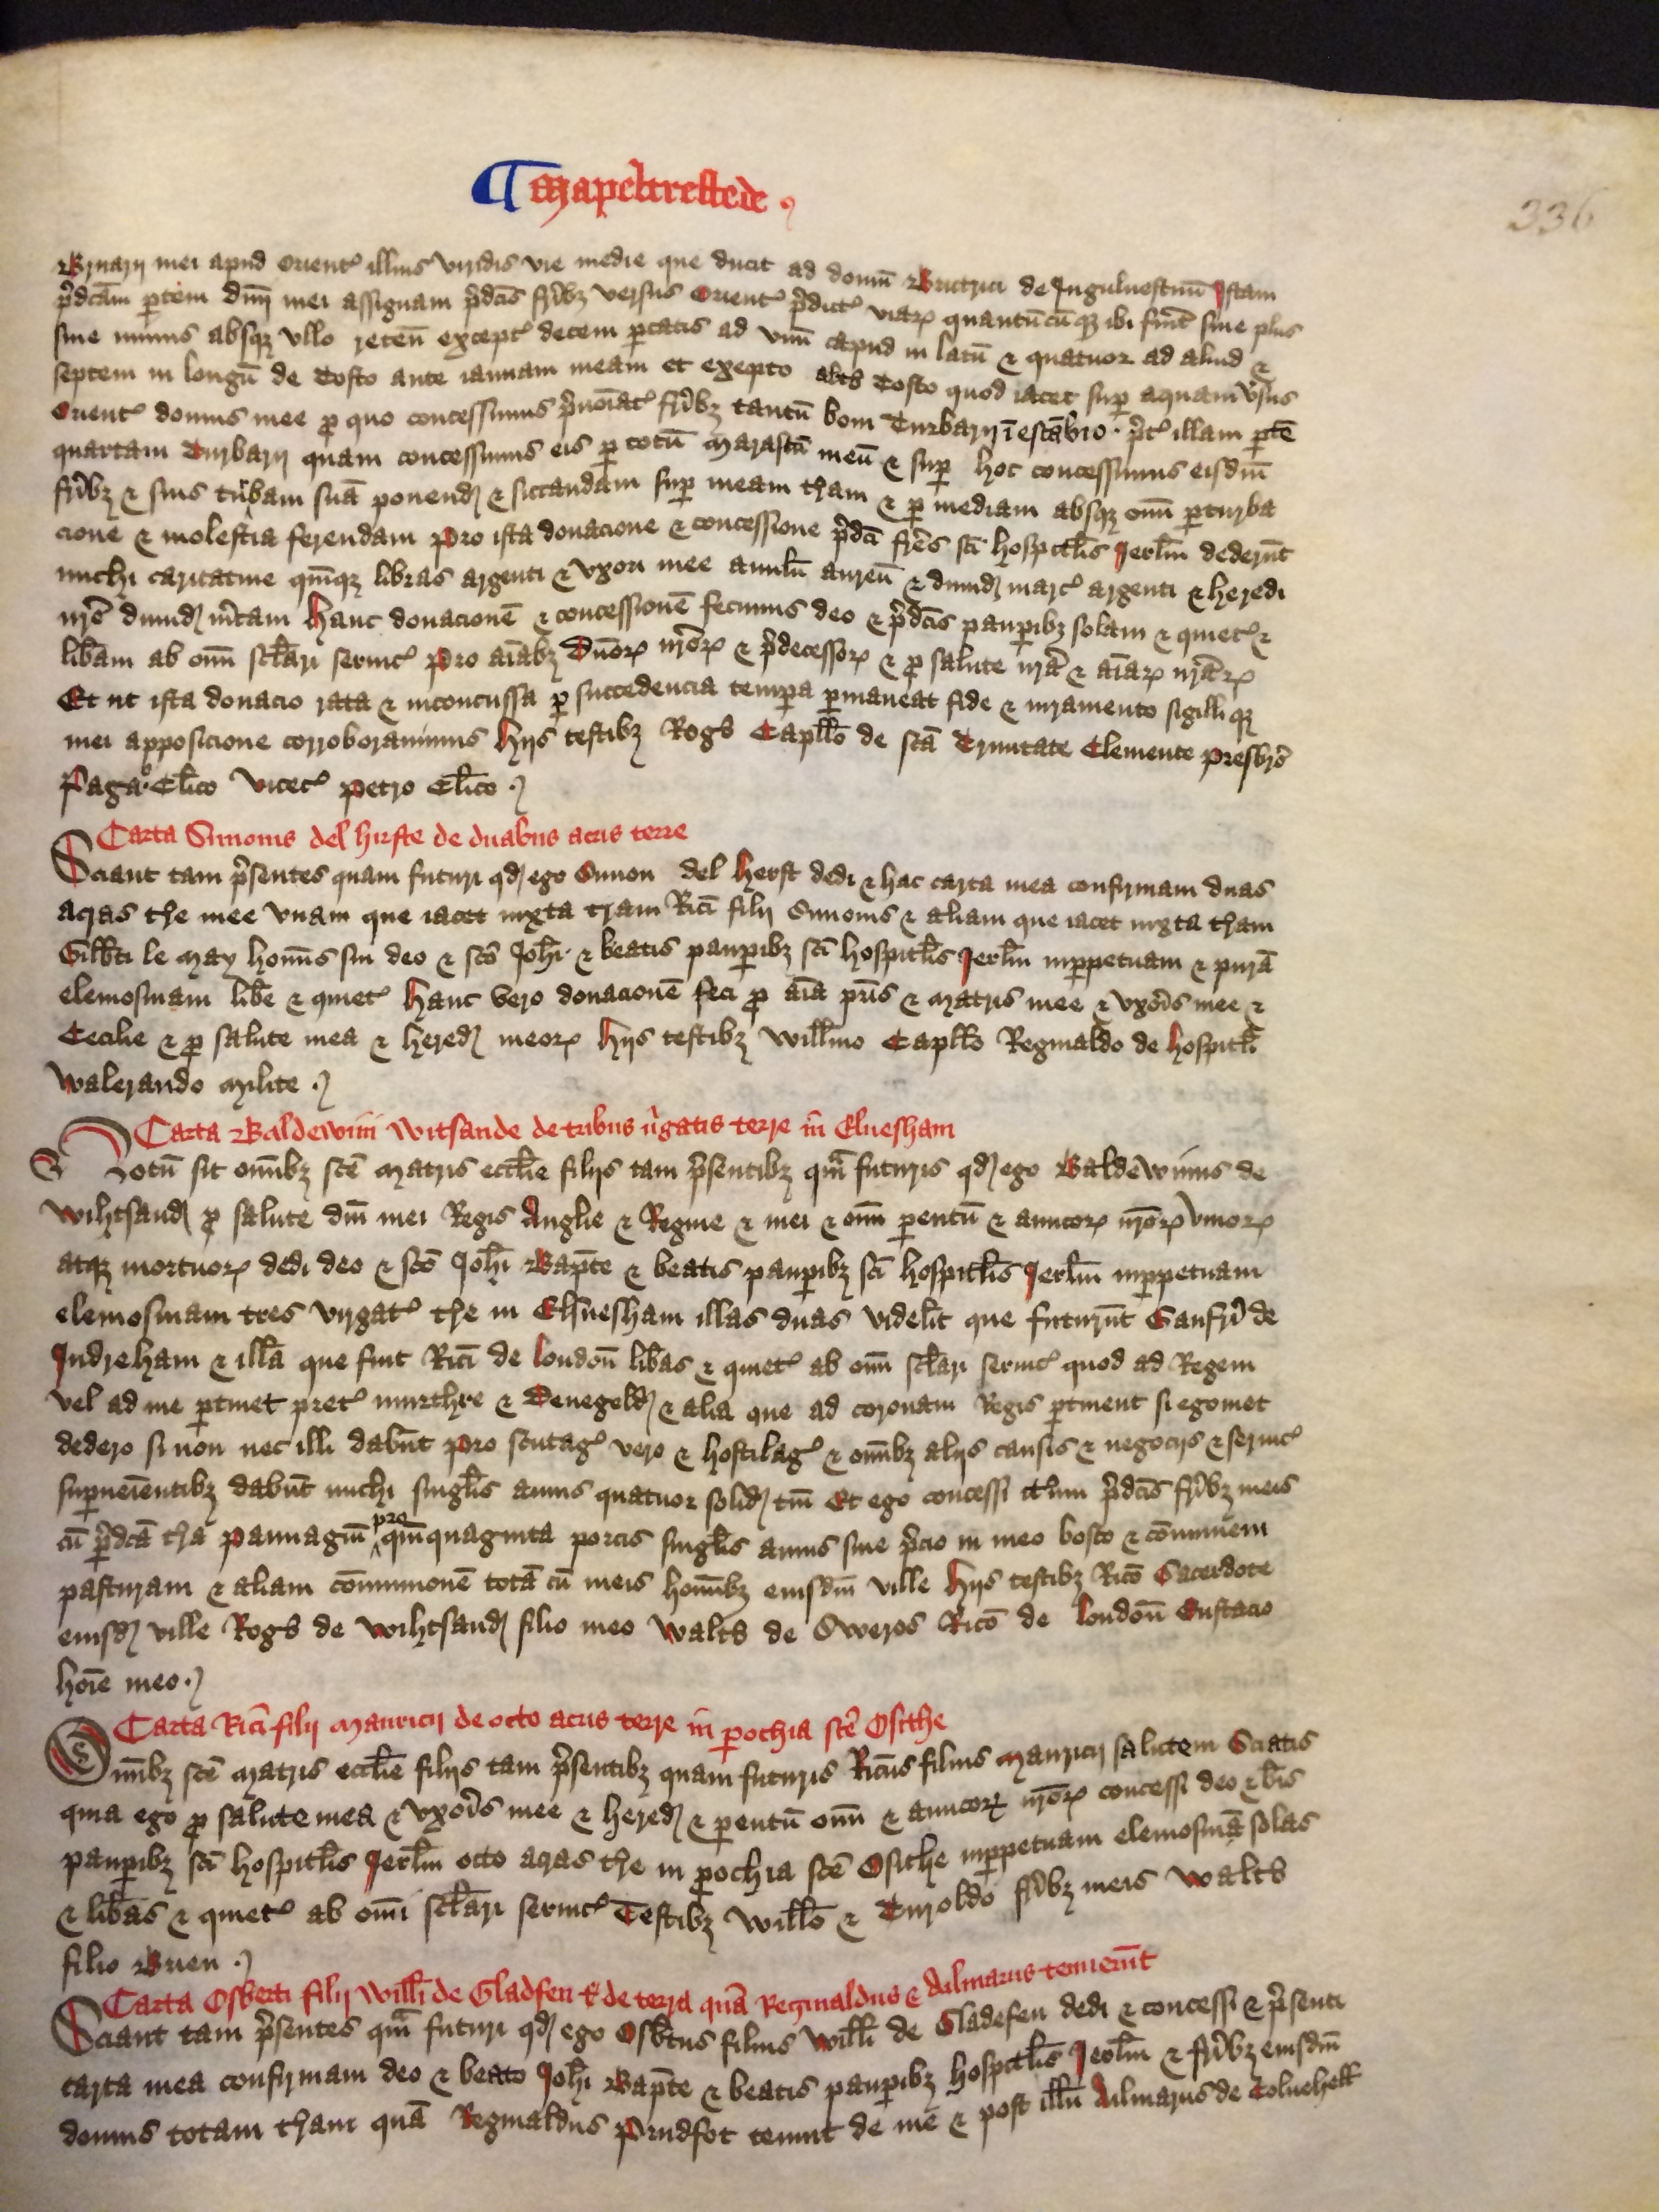 ¶ Mapeltrestede
336
Bruarii mei apud orient' illius viridis vie medie que ducit ad domū Brictrici de Inguluestun̄ Istam
p̄dcām ꝑtem dn̄ij mei assignam p̄dcīs fr̄ibꝫ versus Orient' p̄dict' viaꝝ quantūcūqꝫ ibi fūit siue plus
siue minus absqꝫ vllo reten̄ except' decem ꝑticatis ad vnū capud in latū & quatuor ad aliud &
septem in longū de Tofto ante ianuam meam et exepto alto Tofto quod iacet suꝑ aquam v̄sus
Orient' domus mee ꝓ quo concessimus p̄noīat' fr̄ibꝫ tantū boni Turbarij ī escābio p̄t' illam ꝑtē
quartam Turbarij quam concessimus eis ꝑ totū Marascū meū & suꝑ hoc concessimus eisdm̄
fr̄ibꝫ & suis tūbam suā ponendꝭ & siccandam suꝑ meam t̄ham & ꝑ mediam absqꝫ omī ꝑturba
cione & molestia ferendam Pro ista donacione & concessione p̄dcī fr̄es scī hospitlīs Jerlm̄ dederūt
michi caritatiue qīnqꝫ libras argenti & vxori mee anulū aureū & dimidꝭ marc' argenti & heredi
nr̄o dimidꝭ m̄cam Hanc donacionē & concessionē fecimus deo & p̄dcīs pauꝑibꝫ solam & quiet' &
lib̄am ab omī sclāri seruic' Pro aīabꝫ Dnōꝝ nr̄oꝝ & p̄decessoꝝ & ꝓ salute nr̄a & aīaꝝ nr̄aꝝ
Et ut ista donacio rata & inconcussa ꝑ succedencia tempa ꝑmaneat fide & iuramento sigilliqꝫ
mei apposicione corroborauimus Hijs testibꝫ Rogo Capllō de scā Trinitate Clemente presbro
Paga° Clīco Vicet' Petro Clīco
Carta Simonis del hirste de duabus acris terre
Sciant tam p̄sentes quam futuri qdꝭ ego Simon del Herst dedi & hac carta mea confirmam duas
acras t̄he mee vnam que iacet iuxta tr̄am Ricī filij Simonis & aliam que iacet iuxta t̄ham
Gilb̄ti le May homīs sui deo & scō Joh̄i & beatis pauꝑibꝫ scī hospitlīs Jerlm̄ inꝑpetuam & purā
elemosinam lib̄e & quiet' Hanc vero donacionē feci ꝓ aīa pr̄is & matris mee & vxor̄is mee &
Cecilie & ꝓ salute mea & heredꝭ meoꝝ Hijs testibꝫ Willmō Capllō Reginaldo de hospitlī
Walerando Milite
Carta Baldewini Witsande de tribus v̄gatis terre in Eluesham
Notū sit omībꝫ scē matris ecclīe filijs tam p̄sentibꝫ qm̄ futuris qdꝭ ego Baldewinus de
Wihtsandꝭ ꝓ salute dnī mei Regis Anglie & Regine & mei & omī ꝑentū & amicoꝝ nr̄oꝝ viuoꝝ
atqꝫ mortuoꝝ dedi deo & scō Joh̄i Bapt̄e & beatis pauꝑibꝫ scī hospitlīs Jerlm̄ inꝑpetuam
elemosinam tres virgat' t̄he in Elsuesham illas duas videlīt que fuerūt Gaufr̄i de
Indreham & illā que fuit Ricī de London̄ lib̄as & quiet' ab omī sclāri seruic' quod ad Regem
vel ad me ꝑtinet pret' murthre & Denegeldꝭ & alia que ad coronam Regis ꝑtinent si egomet
dedero si non nec illi dabūt Pro scutag' vero & hostilag' & omībꝫ alijs causis & negocijs & seruic'
supueīentibꝫ dabūt michi singlīs annis quatuor solidꝭ tm̄ Et ego concessi it̄um p̄dcīs fr̄ibꝫ meis
cū p̄dcā t̄ha Pannagiū pro qīnquaginta porcis singlīs annis sine p̄cio in meo bosco & cōmunem
pasturam & aliam cōmunionē totā cū meis homībꝫ eiusdm̄ ville Hijs testibꝫ Ricō Sacerdote
eiusdꝭ ville Rogo de Wihtsandꝭ filio meo Walto de Sweros Ricō de London̄ Eustacio
hoīe meo
Carta Ricī filij Mauricij de octo acris terre in ꝑochia scē Osithe
Omībꝫ scē matris ecclīe filijs tam p̄sentibꝫ quam futuris Ricūs filius Mauricij salutem Sciatis
quia ego ꝓ salute mea & vxor̄is mee & heredꝭ & ꝑentū omī & amicoꝝ nr̄oꝝ concessi deo & b̄is
pauꝑibꝫ scī hospitlīs Jerlm̄ octo acras t̄he in ꝑochia scē Osithe inꝑpetuam elemosinā solas
& lib̄as & quiet' ab omī sclāri seruic' Testibꝫ Willō & Turoldo fr̄ibꝫ meis Walto
filio Brien
Carta Osberti filij Willī de Gladfen & de terra quā Reginaldus & Ailmarus tenuerūt
Sciant tam p̄sentes qm̄ futuri qdꝭ ego Osb̄tus filius Willī de Gladefen dedi & concessi & p̄senti
carta mea confirmam deo & beato Joh̄i Bapt̄e & beatis pauꝑibꝫ hospitlīs Jerlm̄ & fr̄ibꝫ eiusdm̄
domus totam t̄ham quā Reginaldus Prudfot tenuit de me & post illū Ailmarus de Colnehell